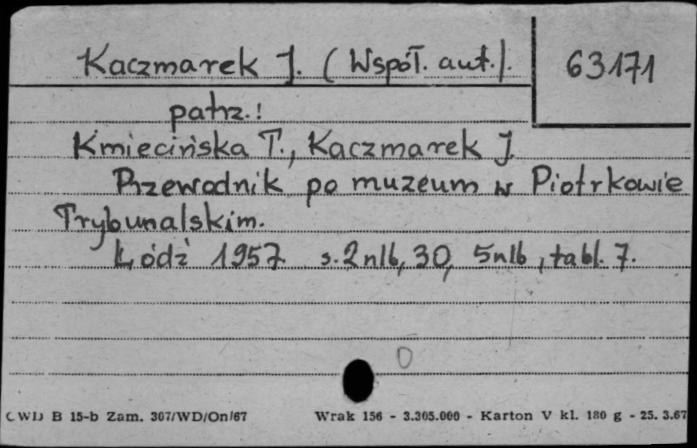 Kaczmarek J. (Współ. aut.).
63171
patrz.:
Kmiecińska T., Kaczmarek J.
Przewodnik po muzeum w Piotrkowie
Trybunalskim.
Łódź 1957 s. 2 nlb, 30, 5 nlb, tabl. 7.
0
CWD B 15-b Zam. 307/WD/On/67 Wrak 156 - 3.305.000 - Karton V kl. 180 g - 25. 3.67